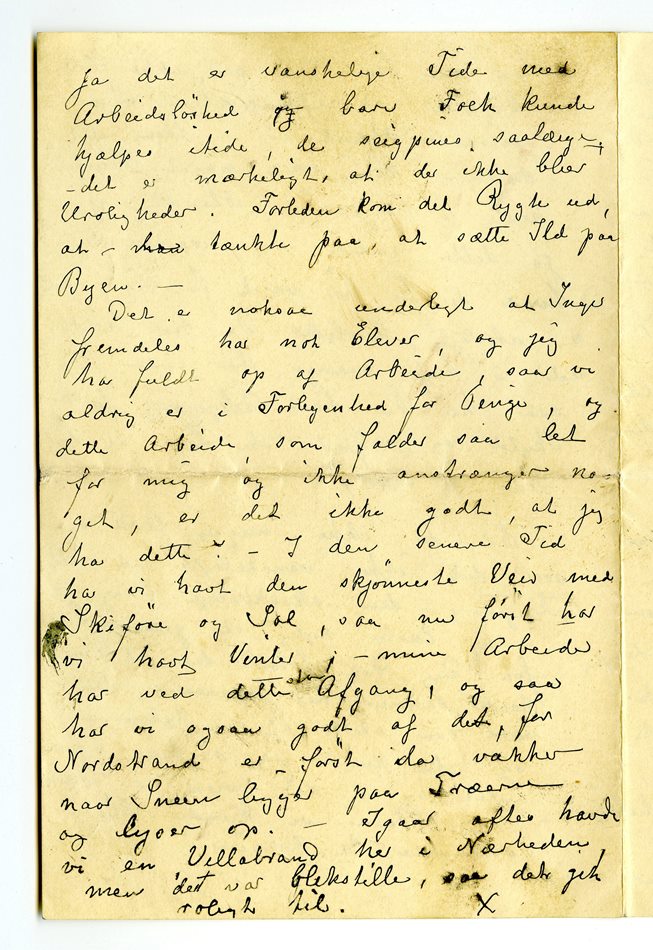 Ja det er vanskelige Tider med
Arbeidsløshed og bare Folk kunde
hjælpes itide, de seigpines saalænge,
- det er mærkeligt, at der ikke blier
Uroligheder. Forleden kom det Rygte ud,
at - tænkte paa, at sætte Ild paa
Byen. —
Det er noksaa underligt at Inger
fremdeles har nok Elever, og jeg
har fuldt op af Arbeide, saa vi
aldrig er i Forlegenhed for Penge, og
dette Arbeide, som falder saa let
for mig og ikke anstrænger no-
get, er det ikke godt, at jeg
har dette? - I den senere Tid
har vi havt den skjønneste Veir med
Skiføre og Sol, saa nu først har
vi havt Vinter; - mine Arbeider
har ved dette Afgang, og saa
har vi ogsaa godt af det, for
Nordstrand er først da vakker
naar Sneen ligger paa Træerne
og lyser op. - Igaar aftes havde
vi en Villabrand her i Nærheden,
men det var blikstille, saa det gik
roligt til. X